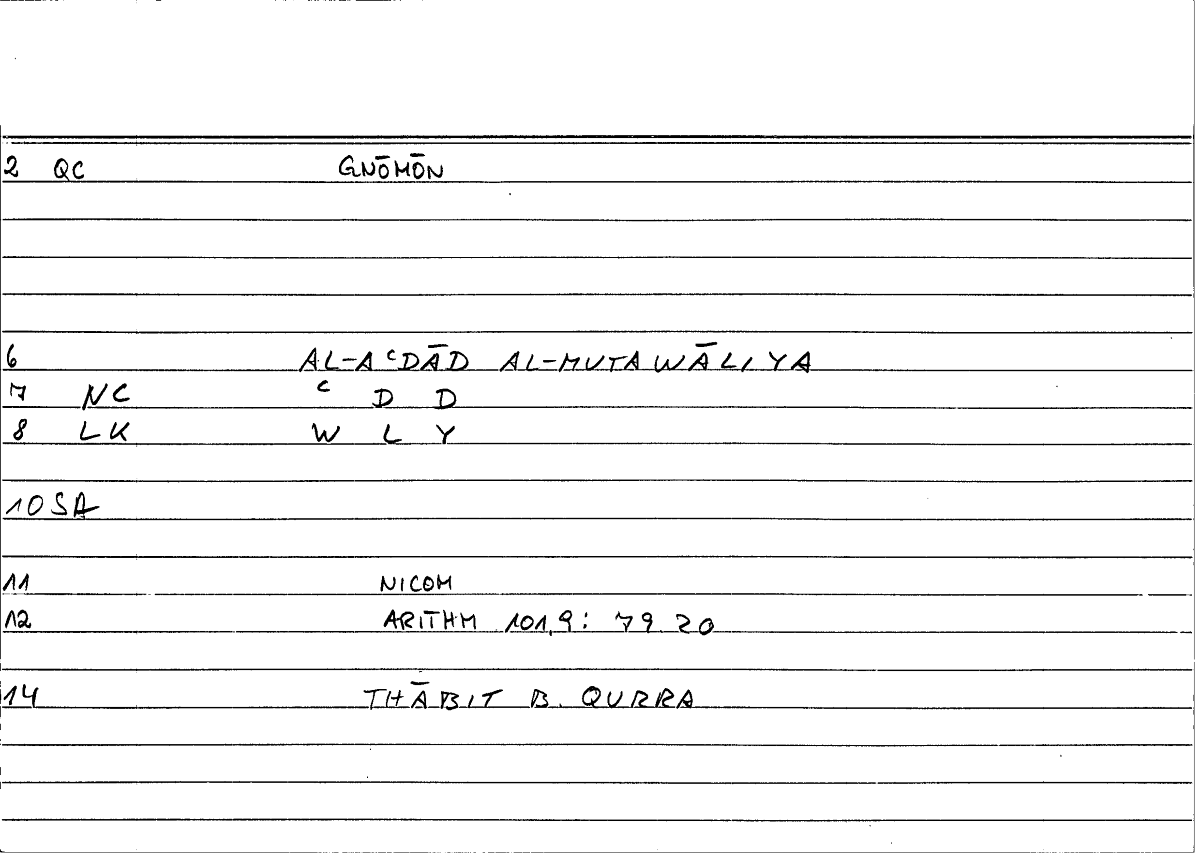 2 QC GNŌMŌN
6 AL-AᶜDĀD AL-MUTAWĀLIYA
7 NC ᶜ D D
8 LK W L Y
10 SA
11 NICOM
12 ARITHM 101,9: 79.20
14 THĀBIT B. QURRA